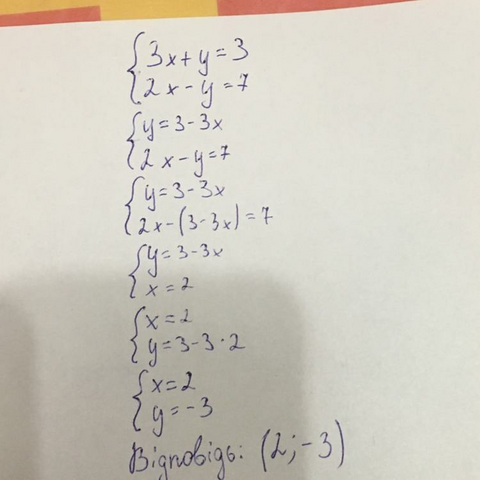 3x+y=3
2x-y=7
y=3-3x
2x-y=7
y=3-3x
2x-(3-3x)=7
y=3-3x
x=2
x=2
y=3-3·2
x=2
y=-3
Відповідь: (2;-3)